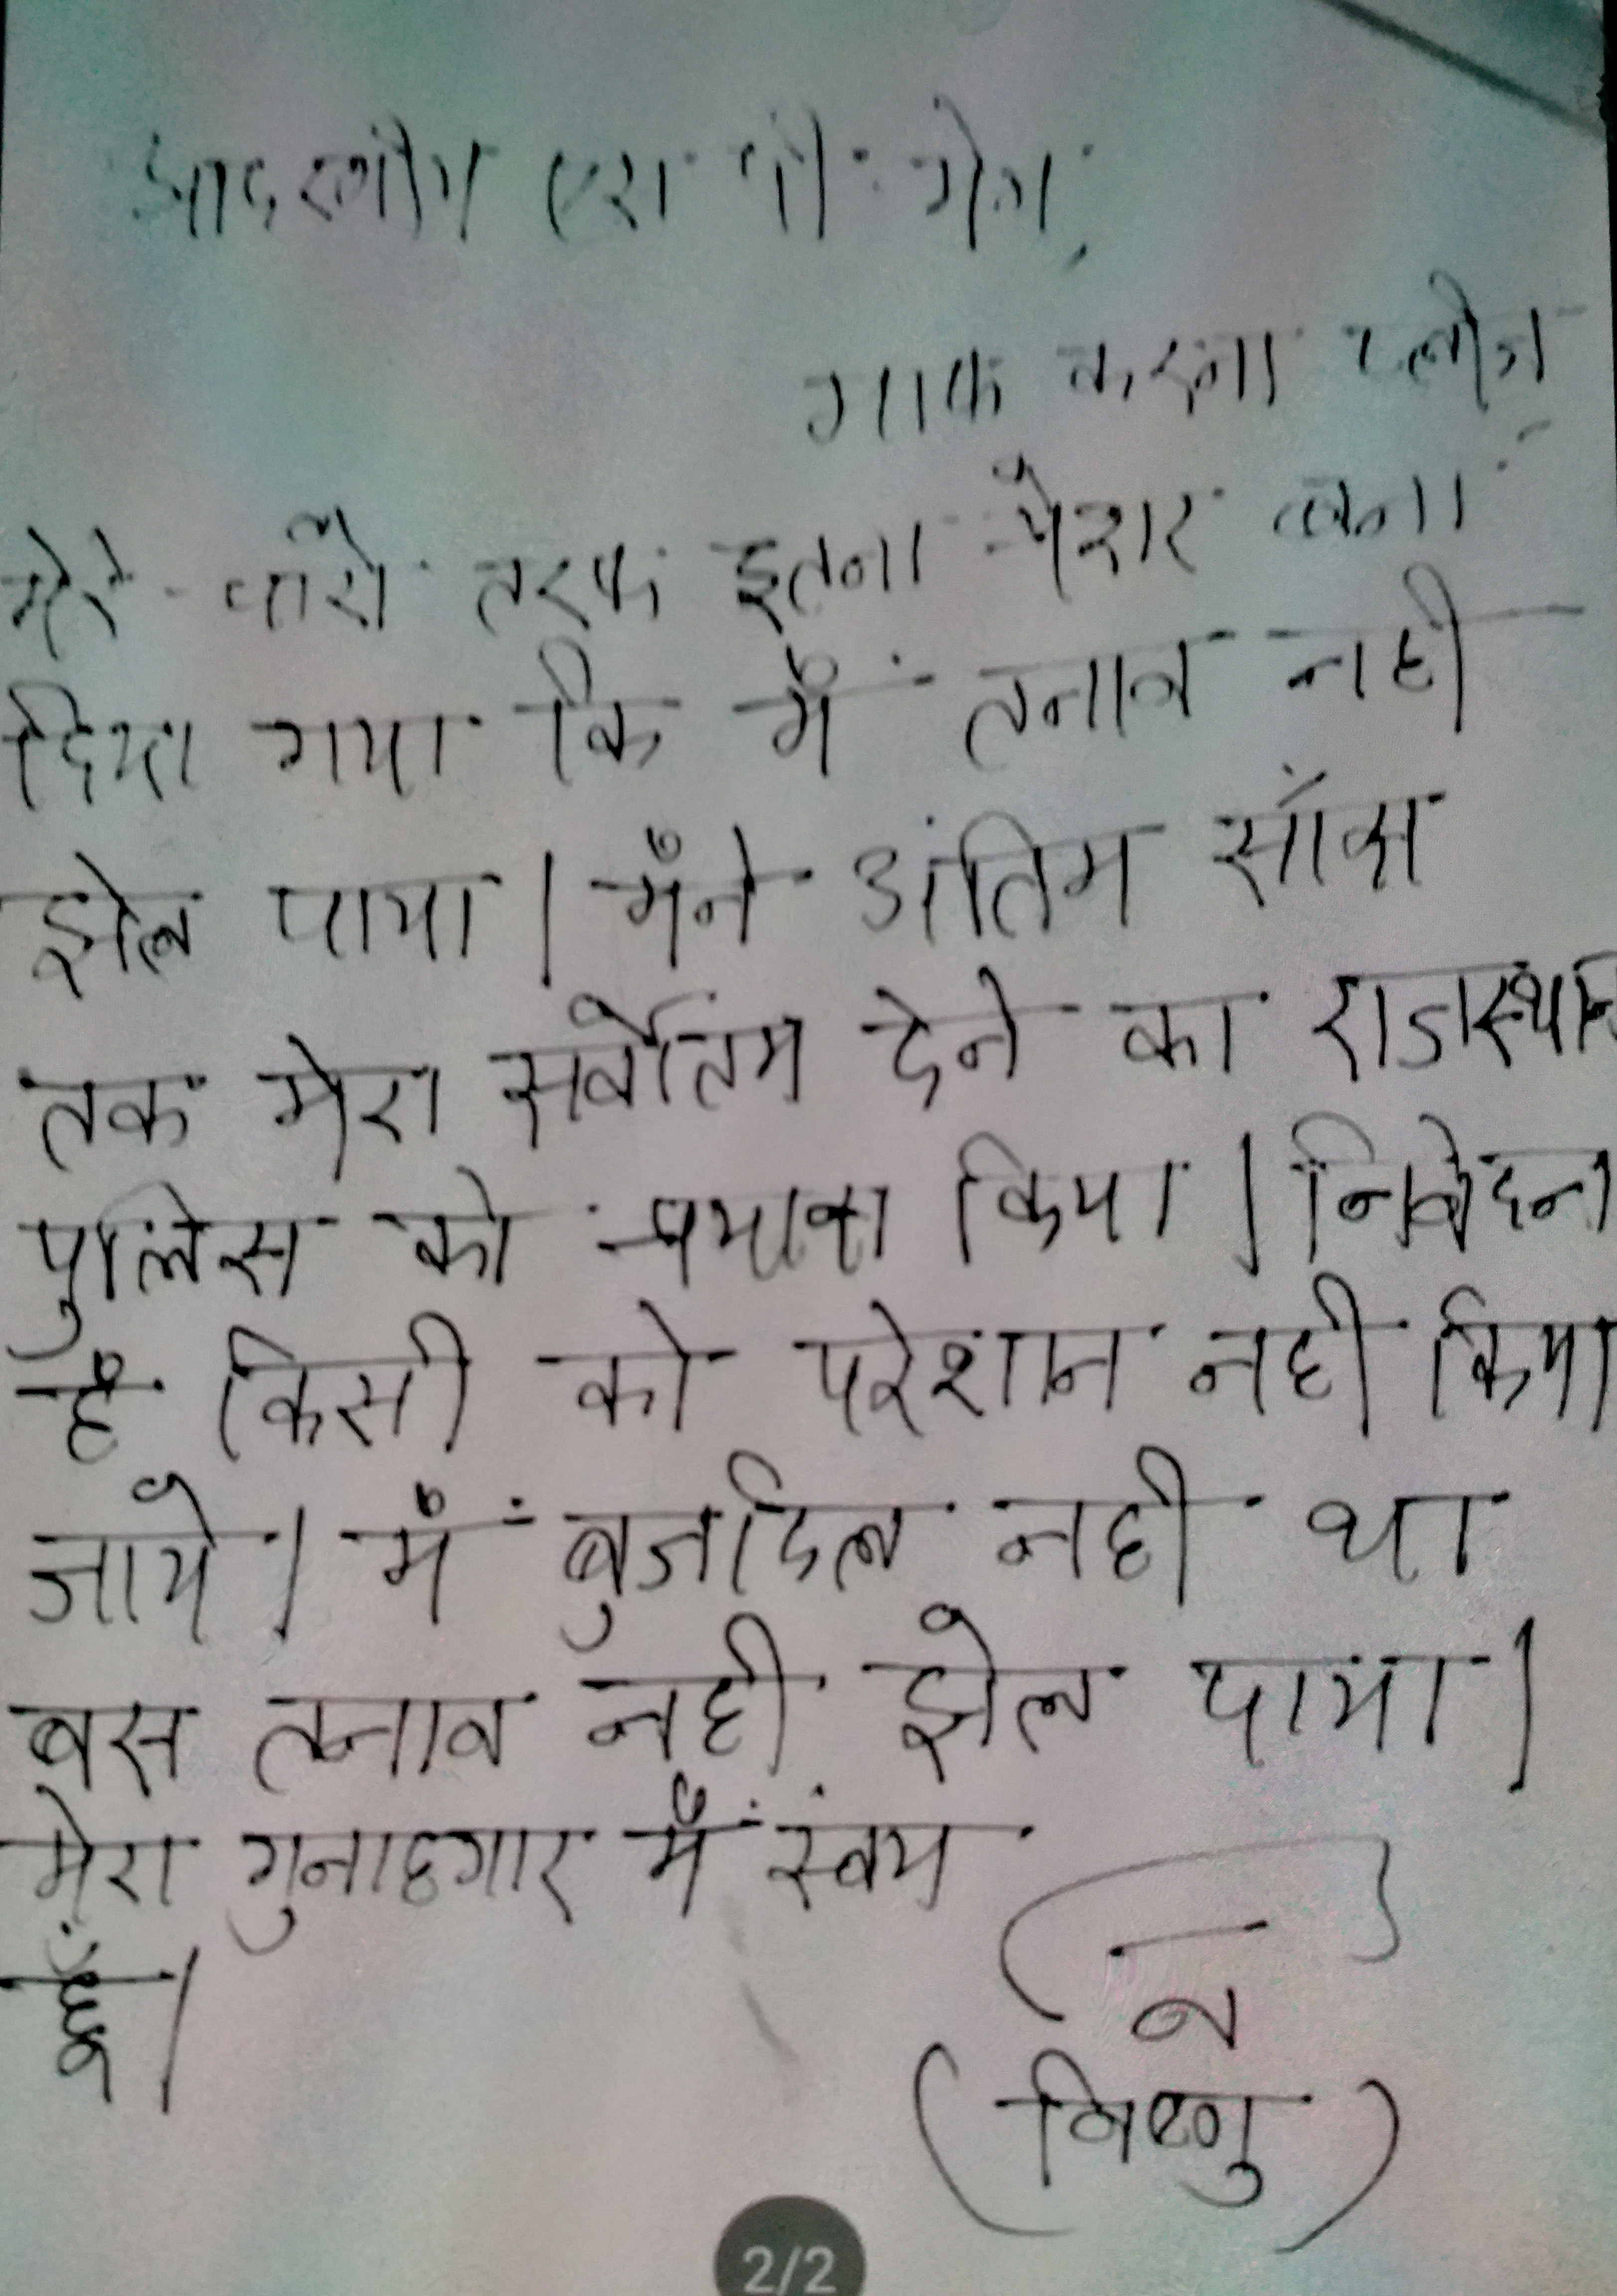 आदरणीय एस पी. मेम,
माफ करना प्लीज,
मेरे चारो तरफ इतना प्रेशर बना
दिया गया कि मैं तनाव नही
झेल पाया। मैंने अंतिम साँस
तक मेरा सर्वोतम देने का राजस्थान
पुलिस को प्रयास किया। निवेदन
है किसी को परेशान नही किया
जाये। मैं बुजदिल नही था
बस तनाव नही झेल पाया।
मेरा गुनाहगार मैं स्वंय
हूँ।
(विष्णु)
2/2